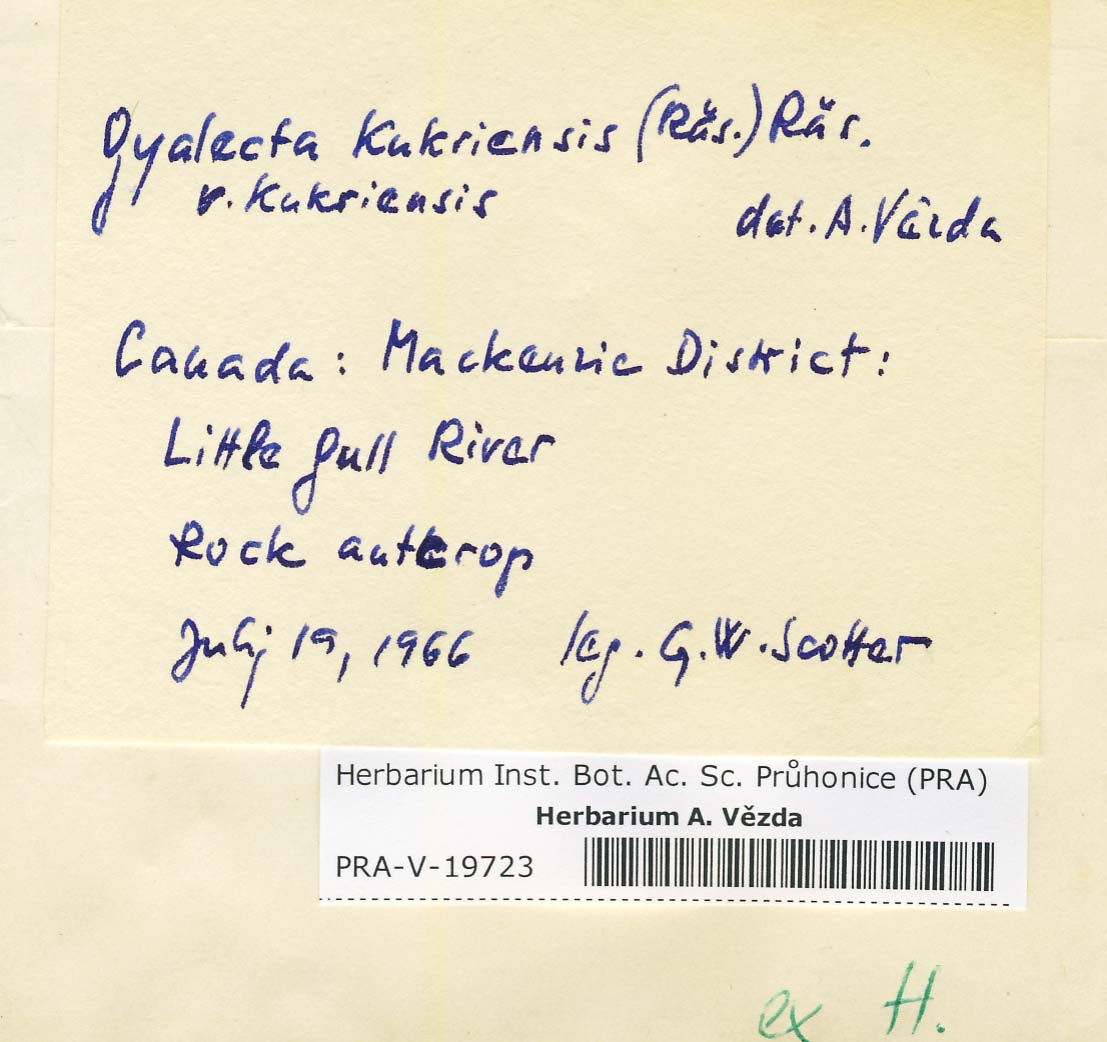 Gyalecta Kukriensis (Räs.) Räs.
v. Kukriensis
det. A. Vězda
Canada: Mackenzie District:
Little Gull River
Rock autcrop
July 19, 1966 leg. G. W. Scotter
Herbarium Inst. Bot. Ac. Sc. Průhonice (PRA)
Herbarium A. Vězda
PRA-V-19723
ex H.